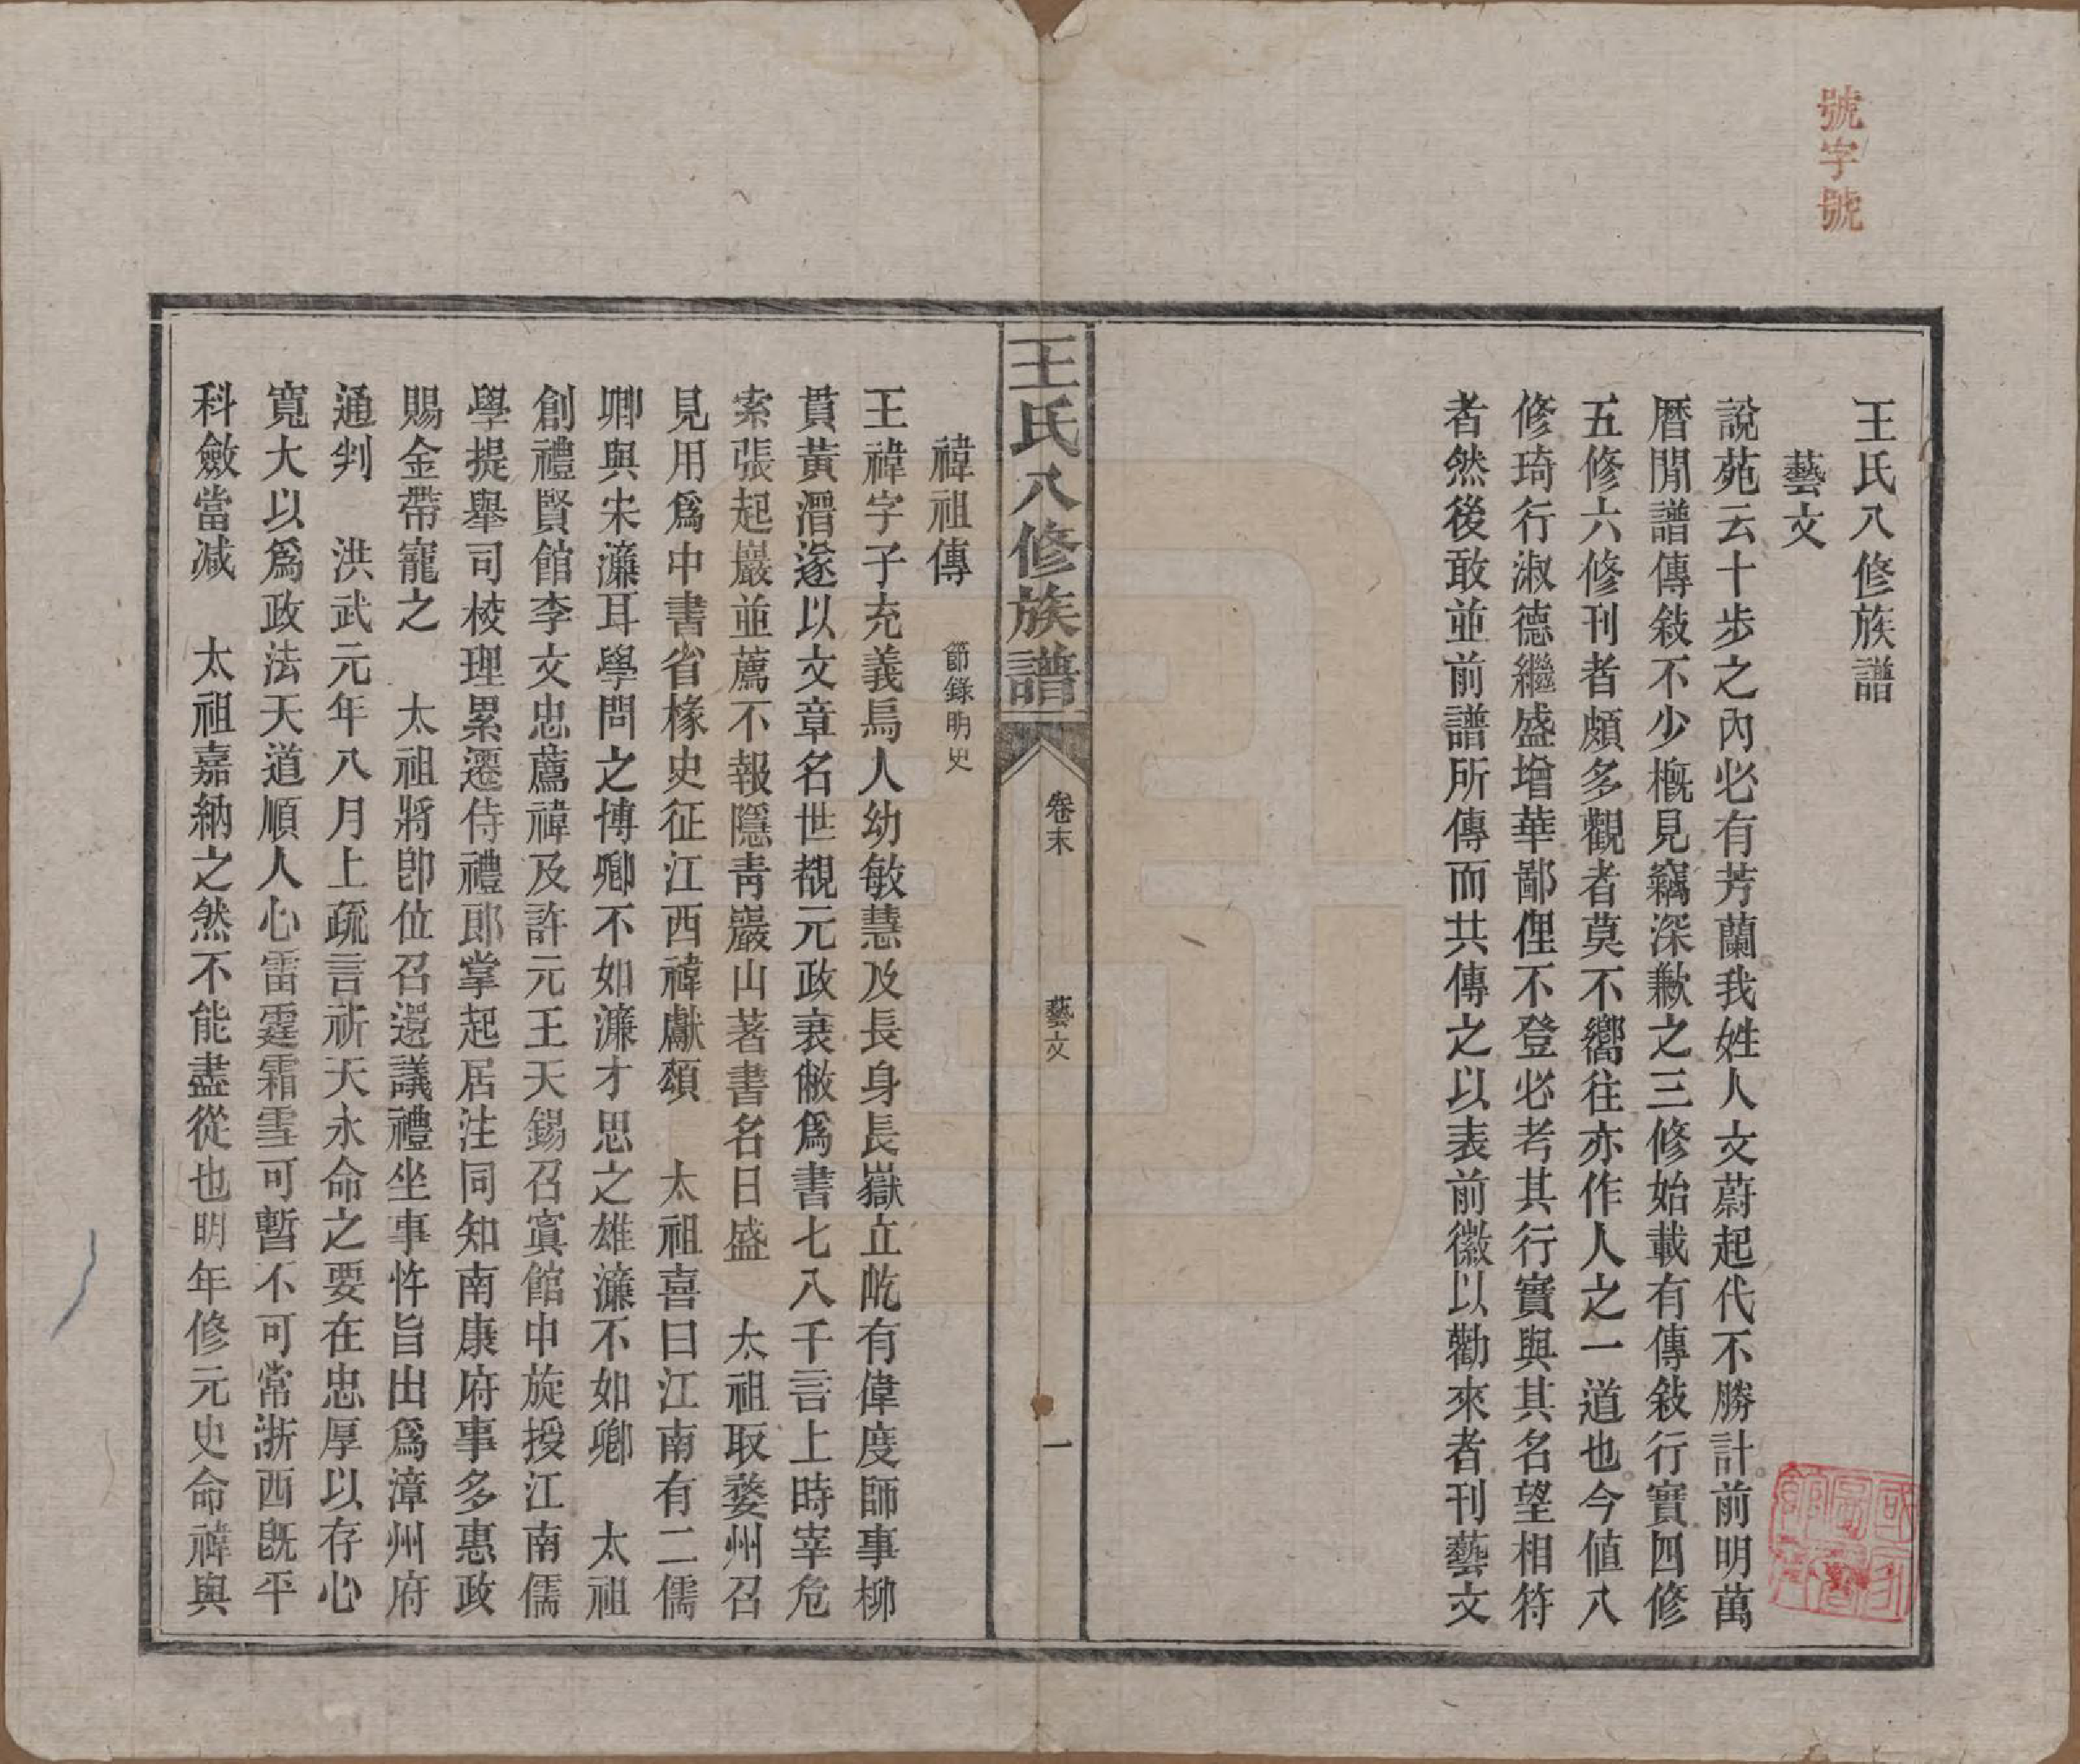 號字號
王氏八修族譜
藝文
說苑云十步之內必有芳蘭我姓人文蔚起代不勝計前明萬
曆閒譜傳敍不少概見竊深歉之三修始載有傳敍行實四修
五修六修刊者頗多觀者莫不嚮往亦作人之一道也今值八
修琦行淑德繼盛增華鄙俚不登必考其行實與其名望相符
者然後敢並前譜所傳而共傳之以表前徽以勸來者刊藝文
王氏八修族譜 卷末 藝文 一
禕祖傳 節錄明史
王禕字子充義烏人幼敏慧及長身長嶽立屹有偉度師事柳
貫黃溍遂以文章名世覩元政衰敝爲書七八千言上時宰危
索張起巖並薦不報隱青巖山著書名日盛 太祖取婺州召
見用爲中書省椽史征江西禕獻頌 太祖喜曰江南有二儒
卿與宋濂耳學問之博卿不如濂才思之雄濂不如卿 太祖
創禮賢館李文忠薦禕及許元王天錫召寘館中旋授江南儒
學提舉司校理累遷侍禮郎掌起居注同知南康府事多惠政
賜金帶寵之 太祖將卽位召還議禮坐事忤旨出爲漳州府
通判 洪武元年八月上疏言祈天永命之要在忠厚以存心
寬大以爲政法天道順人心雷霆霜雪可暫不可常浙西旣平
科斂當減 太祖嘉納之然不能盡從也明年修元史命禕與